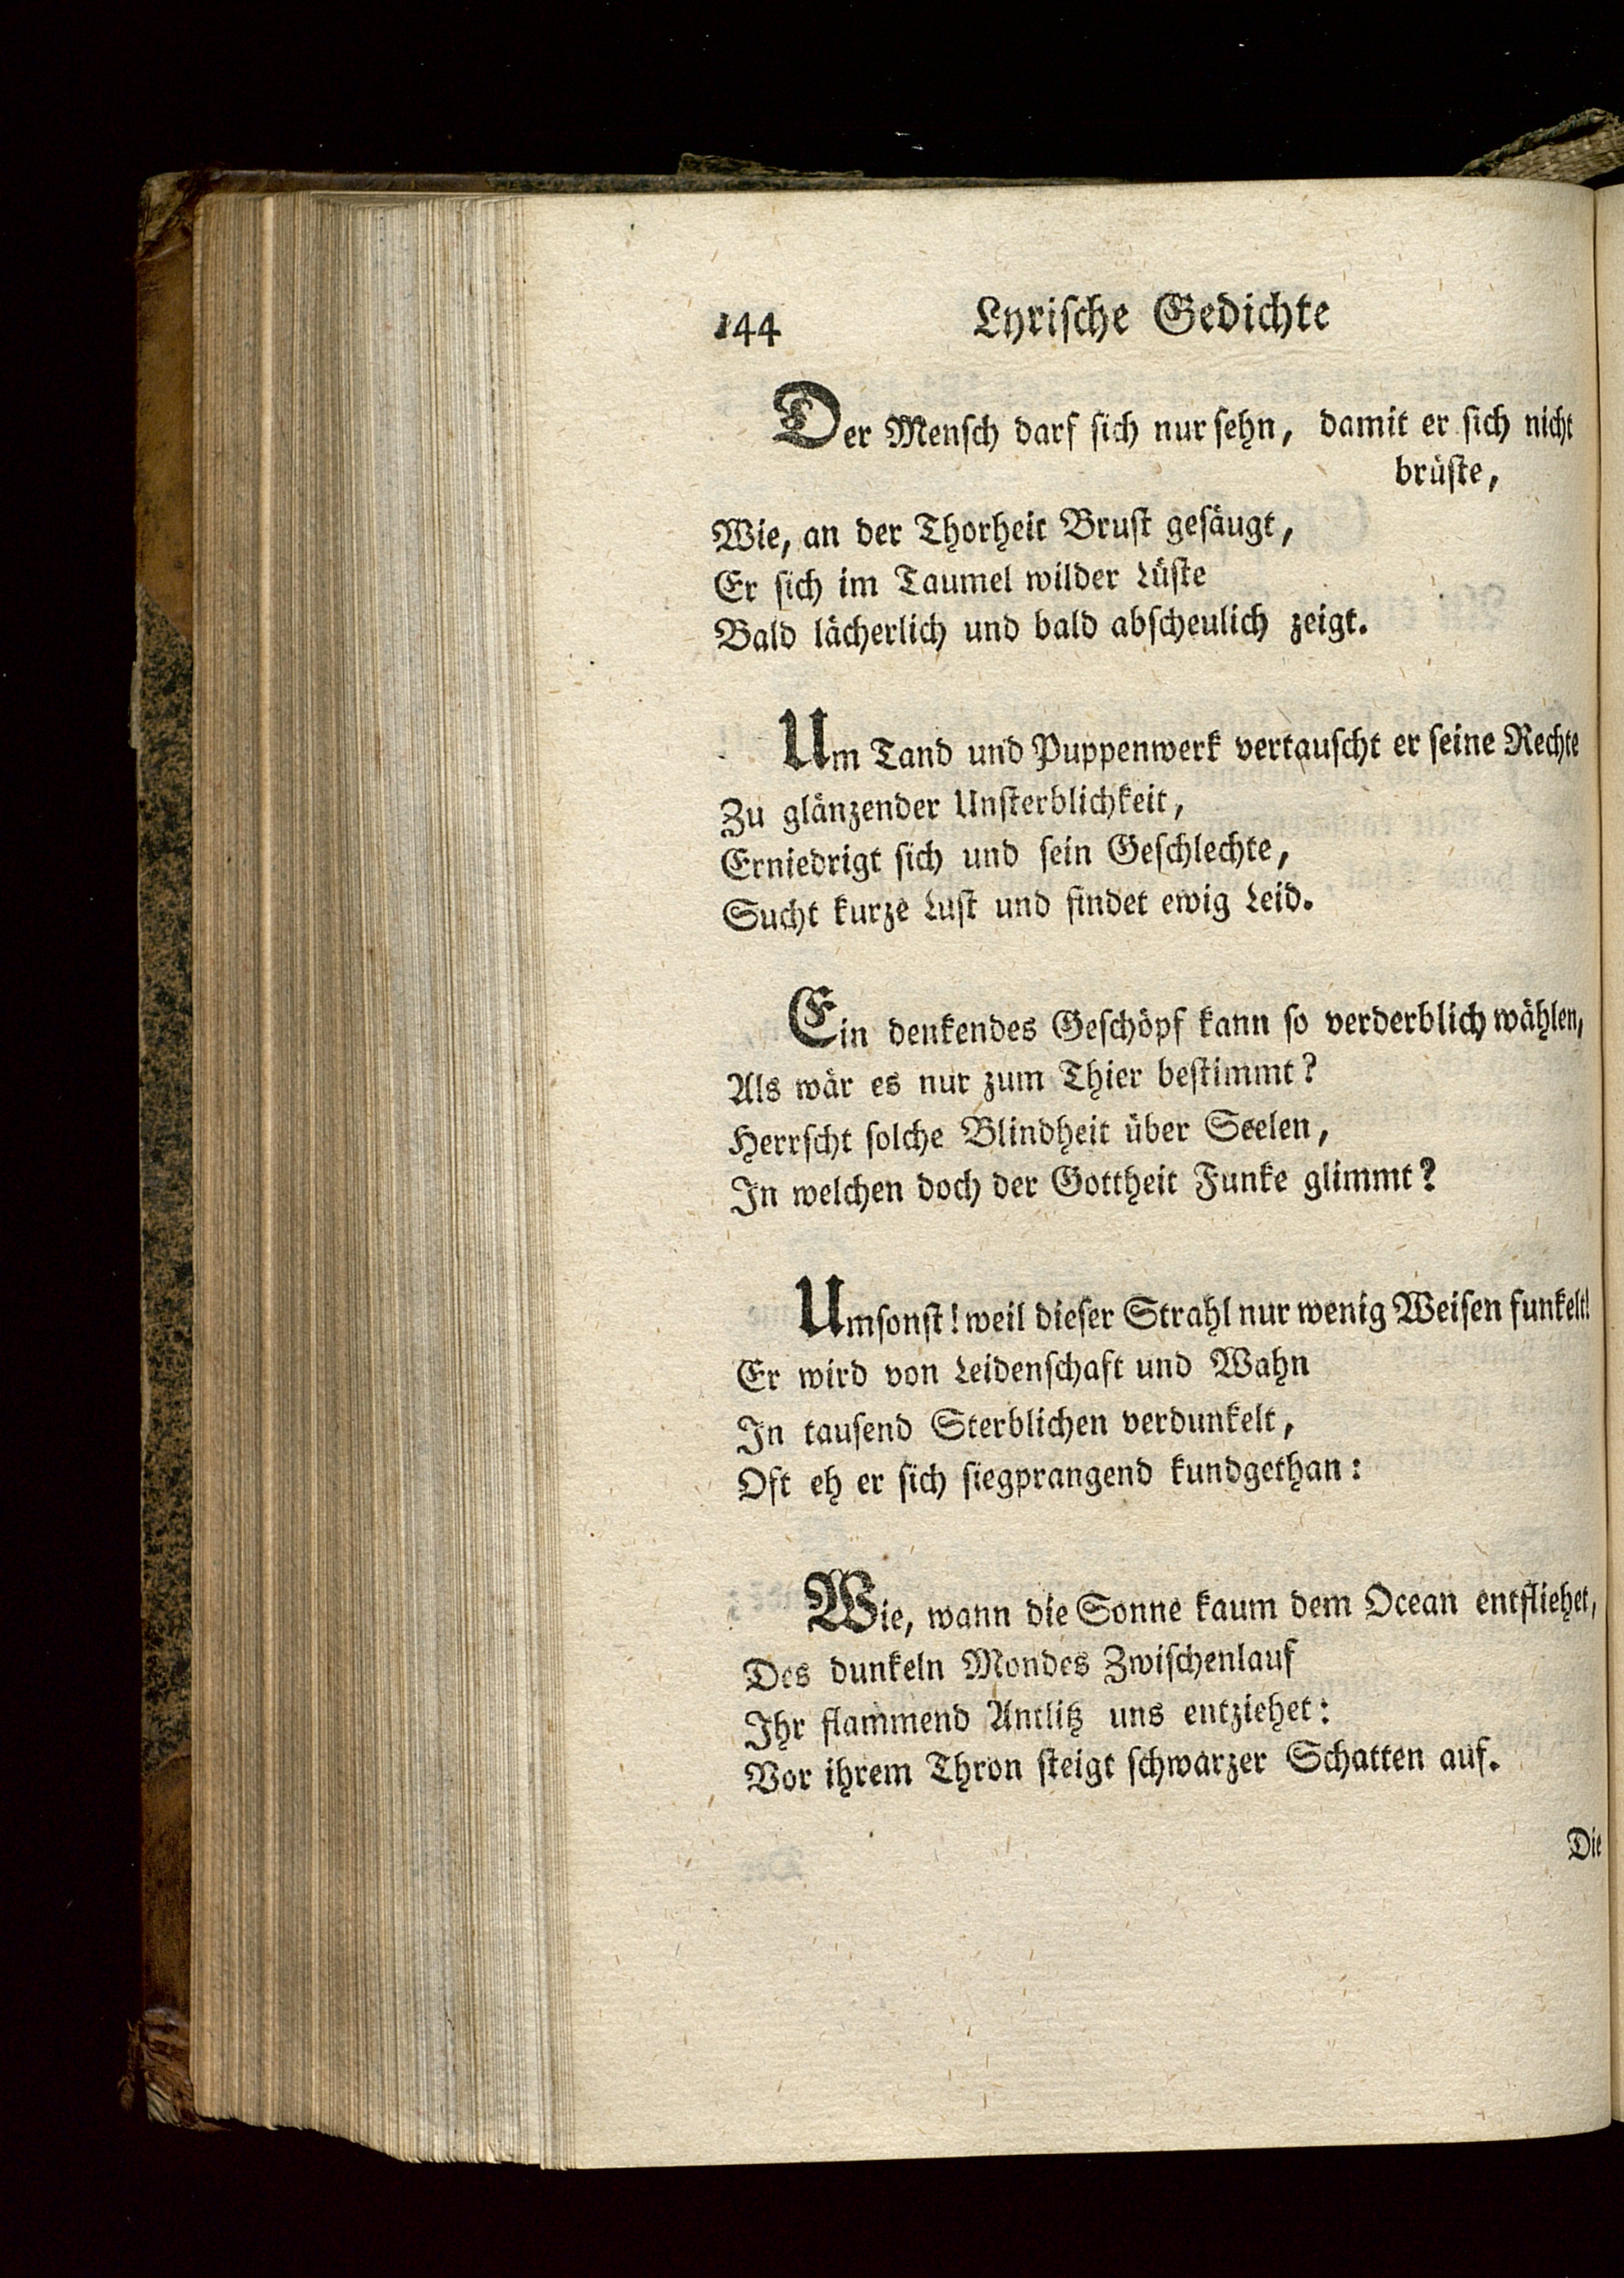 144 Lyrische Gedichte
Der Mensch darf sich nur sehn, damit er sich nicht
brüste,
Wie, an der Thorheit Brust gesäugt,
Er sich im Taumel wilder Lüste
Bald lächerlich und bald abscheulich zeigt.
Um Tand und Puppenwerk vertauscht er seine Rechte
Zu glänzender Unsterblichkeit,
Erniedrigt sich und sein Geschlechte,
Sucht kurze Lust und findet ewig Leid.
Ein denkendes Geschöpf kann so verderblich wählen,
Als wär es nur zum Thier bestimmt?
Herrscht solche Blindheit über Seelen,
In welchen doch der Gottheit Funke glimmt?
Umsonst! weil dieser Strahl nur wenig Weisen funkelt!
Er wird von Leidenschaft und Wahn
In tausend Sterblichen verdunkelt,
Oft eh er sich siegprangend kundgethan:
Wie, wann die Sonne kaum dem Ocean entfliehet,
Des dunkeln Mondes Zwischenlauf
Ihr flammend Antlitz uns entziehet:
Vor ihrem Thron steigt schwarzer Schatten auf.
Die